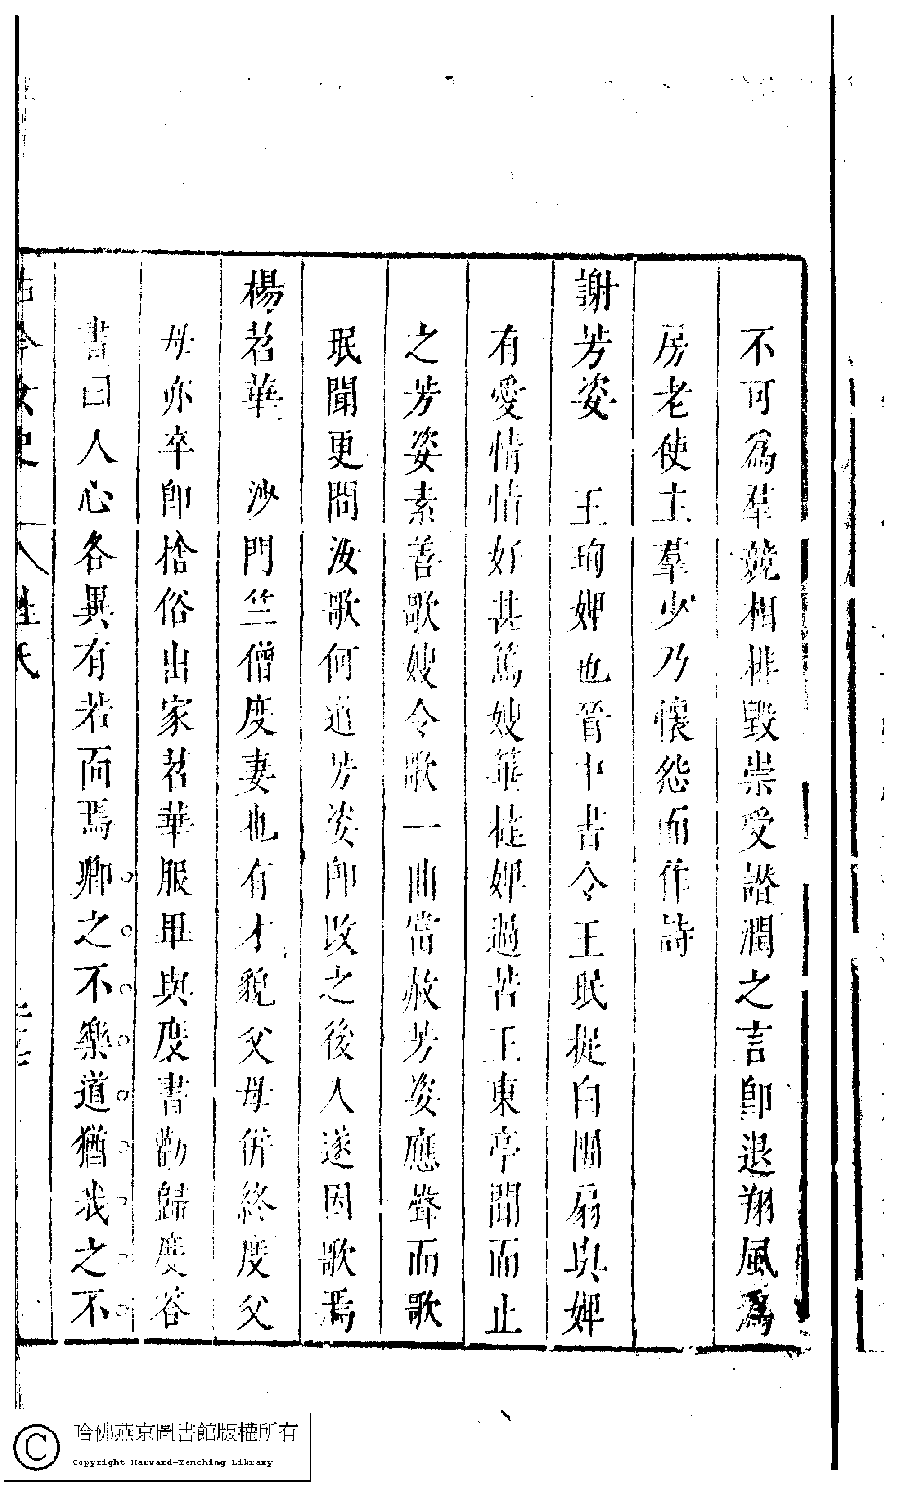 不可爲羣競相排毀崇受譖潤之言卽退翔風爲
房老使主羣少乃懷怨而作詩
謝芳姿　王珣婢也晉中書令王珉捉白團扇與婢
有愛情情好甚篤嫂箠撻婢過苦王東亭聞而止
之芳姿素善歌嫂令歌一曲當赦芳姿應聲而歌
珉聞更問汝歌何遺芳姿卽改之後人遂因歌焉
楊苕華　沙門竺僧度妻也有才貌父母倂終度父
母亦卒卽捨俗出家苕華服畢與度書勸歸度答
書曰人心各異有若面焉卿之不樂道猶我之不
古今女史 人姓氏
哈佛燕京圖書館版權所有
Copyright Harvard-Yenching Library